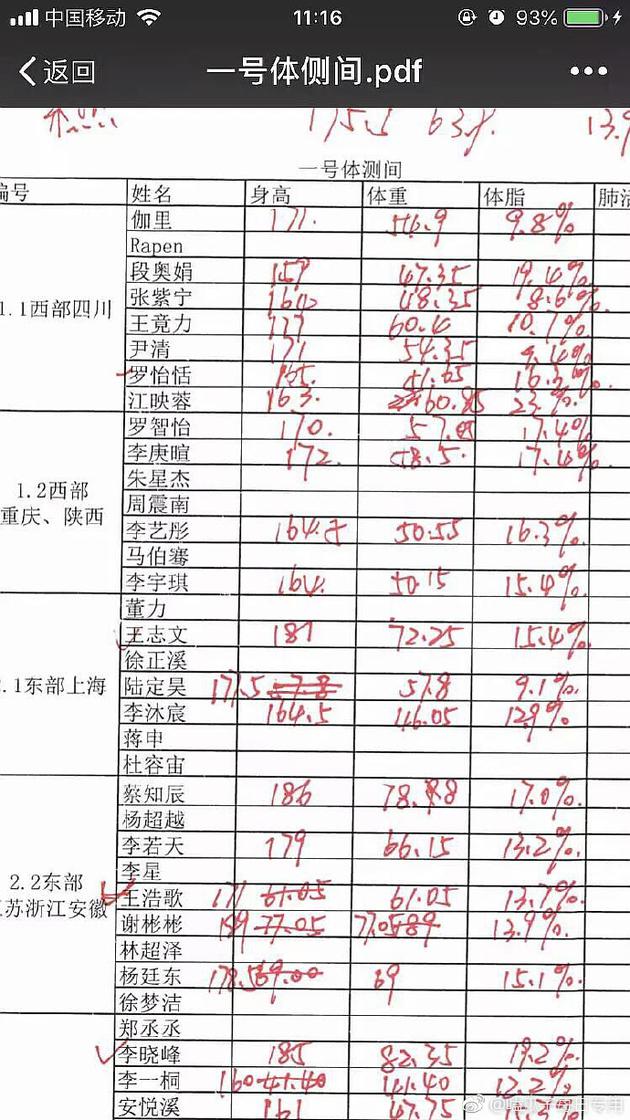 中国移动 11:16 93%
返回 一号体侧间.pdf
175.5 63.8
一号体测间
编号 姓名 身高 体重 体脂 肺活
1.1西部四川
伽里 171. 56.9 9.8%
Rapen
段奥娟 157 47.35 19.4%
张紫宁 48.35 8.6%
王竟力 177 60.4 10.7%
尹清 171 54.35 9.4%
罗怡恬 165. 51.65
江映蓉 163. 60.85 23%.
1.2西部
重庆、陕西
罗智怡 170. 17.4%
李庚暄 172. 58.5. 17.4%
朱星杰
周震南
李艺彤 50.55 16.3%
马伯骞
李宇琪 164. 50.15 15.4%
2.1东部上海
董力
王志文 187 72.25 15.4%
徐正溪
陆定昊 177.5 57.8 9.1%.
李沐宸 164.5 46.05 12.9%
蒋申
杜容宙
2.2东部
江苏浙江安徽
蔡知辰 186 17.0%.
杨超越
李若天 179 66.15 13.2%.
李星
王浩歌 171 61.05 61.05 13.7%.
谢彬彬 189 77.05 77.05 89 13.9%.
林超泽
杨廷东 178.5 69.00 69 15.1%.
徐梦洁
郑丞丞
李晓峰 185 82.35 19.2%.
李一桐 160 41.40 41.40 12.2%
安悦溪 161 47.75